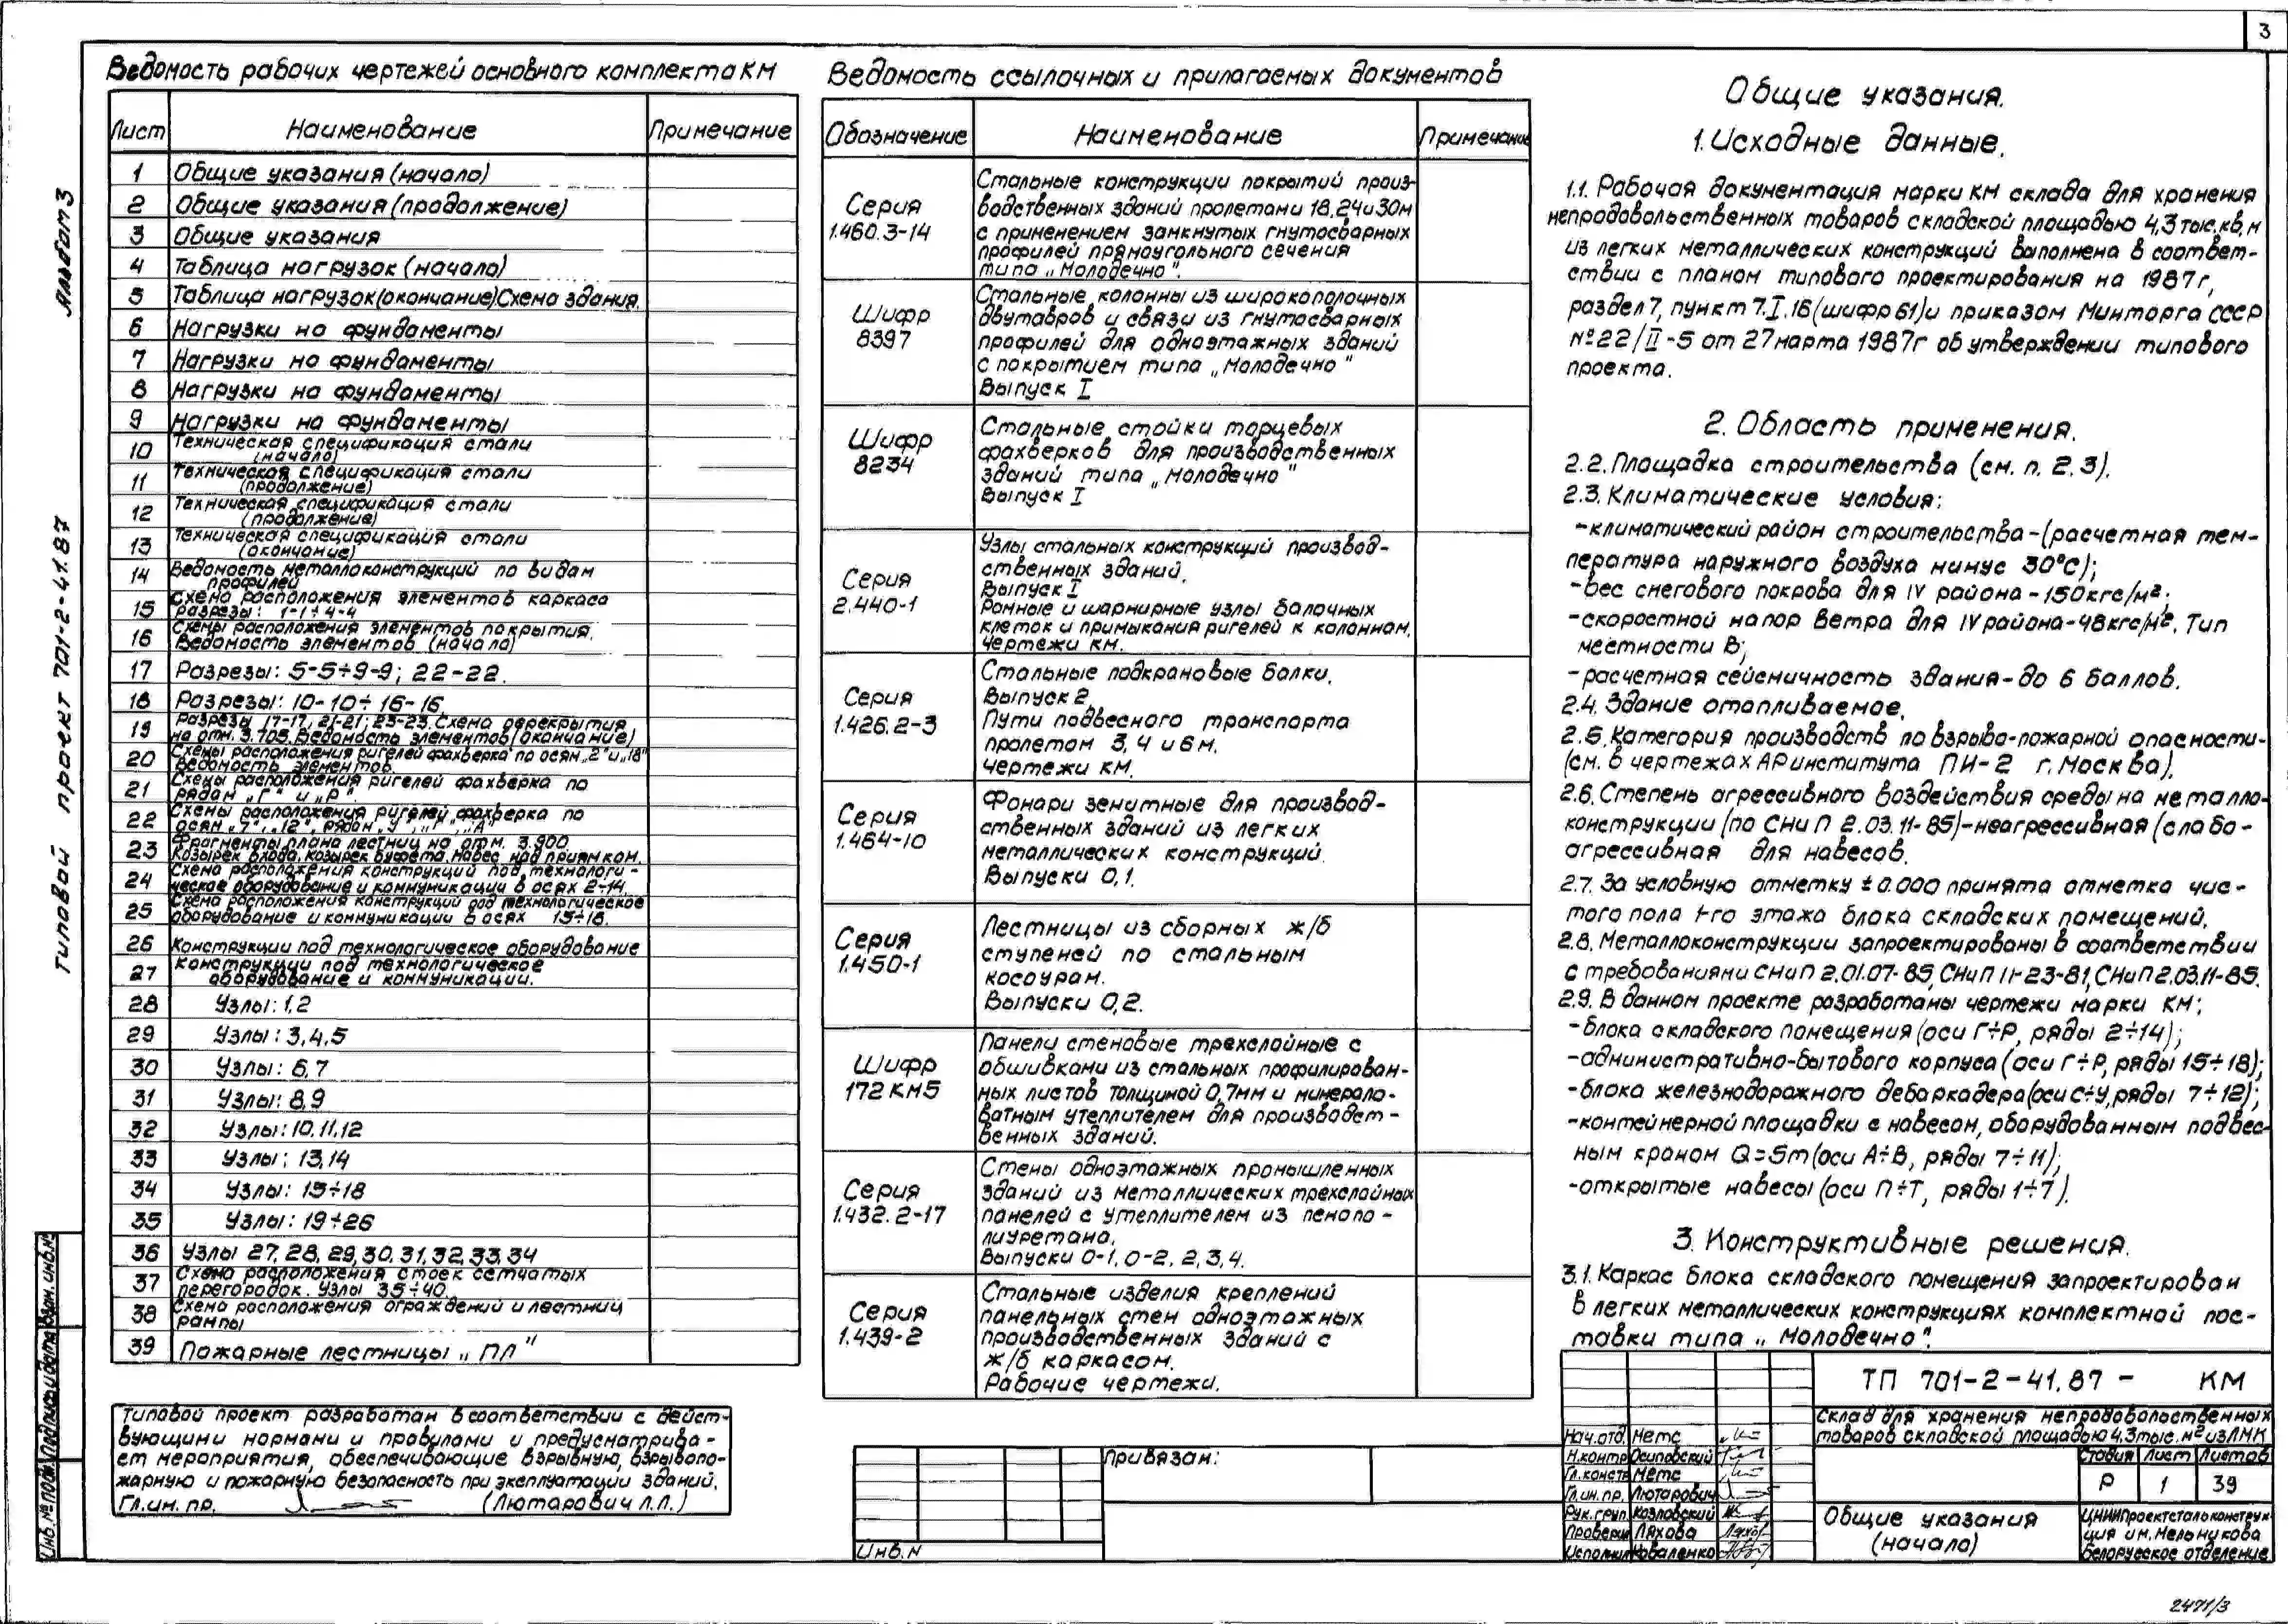 3
Альбом 3
Типовой проект 701-2-41.87
Ведомость рабочих чертежей основного комплекта КМ
Лист Наименование Примечание
1 Общие указания (начало)
2 Общие указания (продолжение)
3 Общие указания
4 Таблица нагрузок (начало)
5 Таблица нагрузок (окончание). Схема здания.
6 Нагрузки на фундаменты
7 Нагрузки на фундаменты
8 Нагрузки на фундаменты
9 Нагрузки на фундаменты
10 Техническая спецификация стали
(начало)
11 Техническая спецификация стали
(продолжение)
12 Техническая спецификация стали
(продолжение)
13 Техническая спецификация стали
(окончание)
14 Ведомость металлоконструкций по видам
профилей
15 Схема расположения элементов каркаса
разрезы: 1-1÷4-4
16 Схемы расположения элементов покрытия.
Ведомость элементов (начало)
17 Разрезы: 5-5÷9-9; 22-22.
18 Разрезы: 10-10÷16-16.
19 Разрезы 17-17, 21-21; 23-23. Схема перекрытия
на отм. 3.705. Ведомость элементов (окончание)
20 Схемы расположения ригелей фахверка по осям „2" и „18"
Ведомость элементов.
21 Схемы расположения ригелей фахверка по
рядам „Г" и „Р".
22 Схемы расположения ригелей фахверка по
осям „7", „12", рядам „У", „Г", „А"
23 Фрагменты плана лестниц на отм. 3.900
Козырек входа. Козырек буфета. Навес над приямком.
24 Схема расположения конструкций под технологи-
ческое оборудование и коммуникации в осях 2÷14.
25 Схема расположения конструкций под технологическое
оборудование и коммуникации в осях 15÷18.
26 Конструкции под технологическое оборудование
27 Конструкции под технологическое
оборудование и коммуникации.
28 Узлы: 1,2
29 Узлы: 3,4,5
30 Узлы: 6,7
31 Узлы: 8,9
32 Узлы: 10,11,12
33 Узлы: 13,14
34 Узлы: 15÷18
35 Узлы: 19÷26
36 Узлы 27, 28, 29, 30, 31, 32, 33, 34
37 Схема расположения стоек сетчатых
перегородок. Узлы 35÷40.
38 Схема расположения ограждений и лестниц
рампы
39 Пожарные лестницы „ПЛ"
Типовой проект разработан в соответствии с дейст-
вующими нормами и правилами и предусматрива-
ет мероприятия, обеспечивающие взрывную, взрывопо-
жарную и пожарную безопасность при эксплуатации зданий.
Гл. ин. пр. (Лютарович Л.Л.)
Ведомость ссылочных и прилагаемых документов
Обозначение Наименование Примечание
Серия
1.460.3-14
Стальные конструкции покрытий произ-
водственных зданий пролетами 18, 24 и 30 м
с применением замкнутых гнутосварных
профилей прямоугольного сечения
типа „Молодечно".
Шифр
8397
Стальные колонны из широкополочных
двутавров и связи из гнутосварных
профилей для одноэтажных зданий
с покрытием типа „Молодечно"
Выпуск I
Шифр
8234
Стальные стойки торцевых
фахверков для производственных
зданий типа „Молодечно"
Выпуск I
Серия
2.440-1
Узлы стальных конструкций производ-
ственных зданий.
Выпуск I
Рамные и шарнирные узлы балочных
клеток и примыкания ригелей к колоннам.
Чертежи КМ.
Серия
1.426.2-3
Стальные подкрановые балки.
Выпуск 2.
Пути подвесного транспорта
пролетом 3, 4 и 6 м.
Чертежи КМ.
Серия
1.464-10
Фонари зенитные для производ-
ственных зданий из легких
металлических конструкций.
Выпуски 0,1.
Серия
1.450-1
Лестницы из сборных ж/б
ступеней по стальным
косоурам.
Выпуски 0,2.
Шифр
172 КМ5
Панели стеновые трехслойные с
обшивками из стальных профилирован-
ных листов толщиной 0,7мм и минерало-
ватным утеплителем для производст-
венных зданий.
Серия
1.432.2-17
Стены одноэтажных промышленных
зданий из металлических трехслойных
панелей с утеплителем из пенопо-
лиуретана.
Выпуски 0-1, 0-2, 2, 3, 4.
Серия
1.439-2
Стальные изделия креплений
панельных стен одноэтажных
производственных зданий с
ж/б каркасом.
Рабочие чертежи.
Привязан:
Инв. N
Общие указания.
1. Исходные данные.
1.1. Рабочая документация марки КМ склада для хранения
непродовольственных товаров складской площадью 4,3 тыс. кв. м
из легких металлических конструкций выполнена в соответ-
ствии с планом типового проектирования на 1987г,
раздел 7, пункт 7.I.16 (шифр 61) и приказом Минторга СССР
№22/II-5 от 27 марта 1987г об утверждении типового
проекта.
2. Область применения.
2.2. Площадка строительства (см. п. 2.3).
2.3. Климатические условия:
-климатический район строительства-(расчетная тем-
пература наружного воздуха минус 30°С);
-вес снегового покрова для IV района - 150кгс/м²;
-скоростной напор ветра для IV района-48кгс/м². Тип
местности В;
-расчетная сейсмичность здания-до 6 баллов.
2.4. Здание отапливаемое.
2.5. Категория производств по взрыво-пожарной опасности-
(см. в чертежах АР института ПИ-2 г. Москва).
2.6. Степень агрессивного воздействия среды на металло-
конструкции (по СНиП 2.03.11-85)-неагрессивная (слабо-
агрессивная для навесов.
2.7. За условную отметку ±0.000 принята отметка чис-
того пола 1-го этажа блока складских помещений.
2.8. Металлоконструкции запроектированы в соответствии
с требованиями СНиП 2.01.07-85, СНиП II-23-81, СНиП 2.03.11-85.
2.9. В данном проекте разработаны чертежи марки КМ:
-блока складского помещения (оси Г÷Р, ряды 2÷14);
-административно-бытового корпуса (оси Г÷Р, ряды 15÷18);
-блока железнодорожного дебаркадера (оси С÷У, ряды 7÷12);
-контейнерной площадки с навесом, оборудованным подвес-
ным краном Q=5т (оси А÷В, ряды 7÷11);
-открытые навесы (оси П÷Т, ряды 1÷7).
3. Конструктивные решения.
3.1. Каркас блока складского помещения запроектирован
в легких металлических конструкциях комплектной пос-
тавки типа „Молодечно".
ТП 701-2-41.87 - КМ
Склад для хранения непродовольственных
товаров складской площадью 4,3 тыс. м² из ЛМК
Нач. отд. Метс
Н. контр. Осиповский
Гл. констр. Метс
Гл. ин. пр. Лютарович
Рук. груп. Козловский
Проверил Ляхова
Исполнил Коваленко
Стадия Лист Листов
Р 1 39
Общие указания
(начало)
ЦНИИПроектстальконструк-
ция им. Мельникова
Белорусское отделение
Инв. № подл. Подпись и дата Взам. инв. №
2471/3